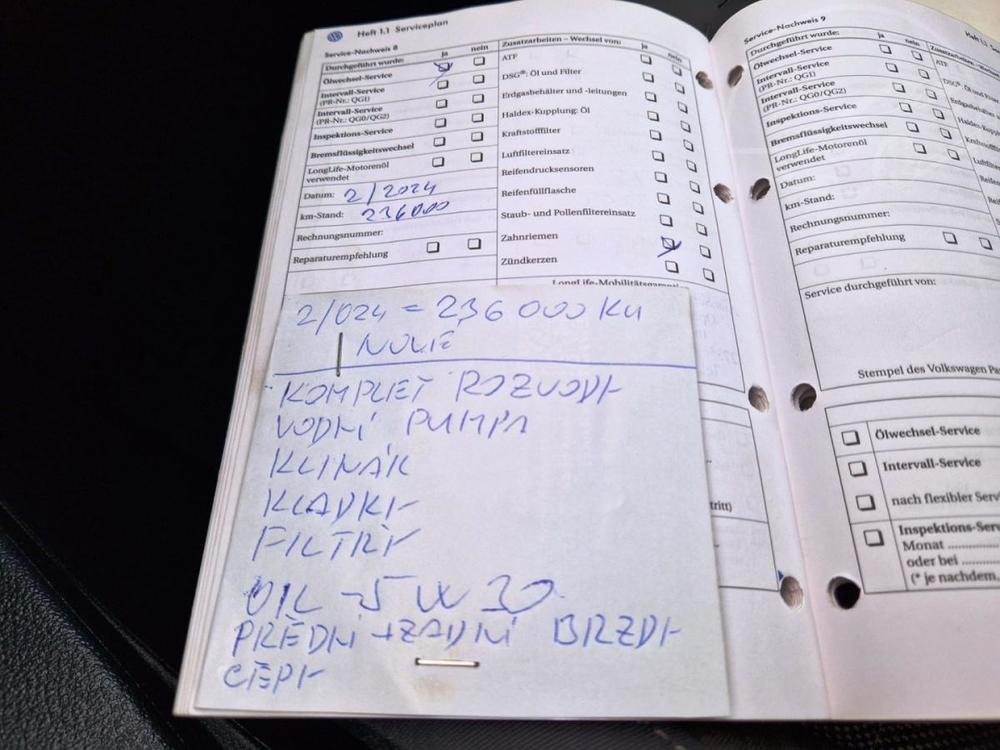 Heft 1.1 Serviceplan
Service-Nachweis 8
Durchgeführt wurde: ja nein
Ölwechsel-Service
Intervall-Service
(PR-Nr.: QG1)
Intervall-Service
(PR-Nr.: QG0/QG2)
Inspektions-Service
Bremsflüssigkeitswechsel
LongLife-Motorenöl
verwendet
Datum: 2/2024
km-Stand: 236000
Rechnungsnummer:
Reparaturempfehlung
Zusatzarbeiten – Wechsel von: ja nein
ATF
DSG®: Öl und Filter
Erdgasbehälter und -leitungen
Haldex-Kupplung: Öl
Kraftstofffilter
Luftfiltereinsatz
Reifendrucksensoren
Reifenfüllflasche
Staub- und Pollenfiltereinsatz
Zahnriemen
Zündkerzen
LongLife-Mobilitätsgarantie
2/024 = 236 000 KM
NOVÉ
KOMPLET ROZVODY
VODNÍ PUMPA
KLINÁK
KLADKY
FILTRY
OIL -5W30
PŘEDNÍ +ZADNÍ BRZDY
ČEPY
tritt)
Service-Nachweis 9
Heft 1.1
Durchgeführt wurde: ja nein
Ölwechsel-Service
Intervall-Service
(PR-Nr.: QG1)
Intervall-Service
(PR-Nr.: QG0/QG2)
Inspektions-Service
Bremsflüssigkeitswechsel
LongLife-Motorenöl
verwendet
Datum:
km-Stand:
Rechnungsnummer:
Reparaturempfehlung
Service durchgeführt von:
ATF
Stempel des Volkswagen Pa
Ölwechsel-Service
Intervall-Service
nach flexibler Serv
Inspektions-Serv
Monat
oder bei
(* je nachdem,